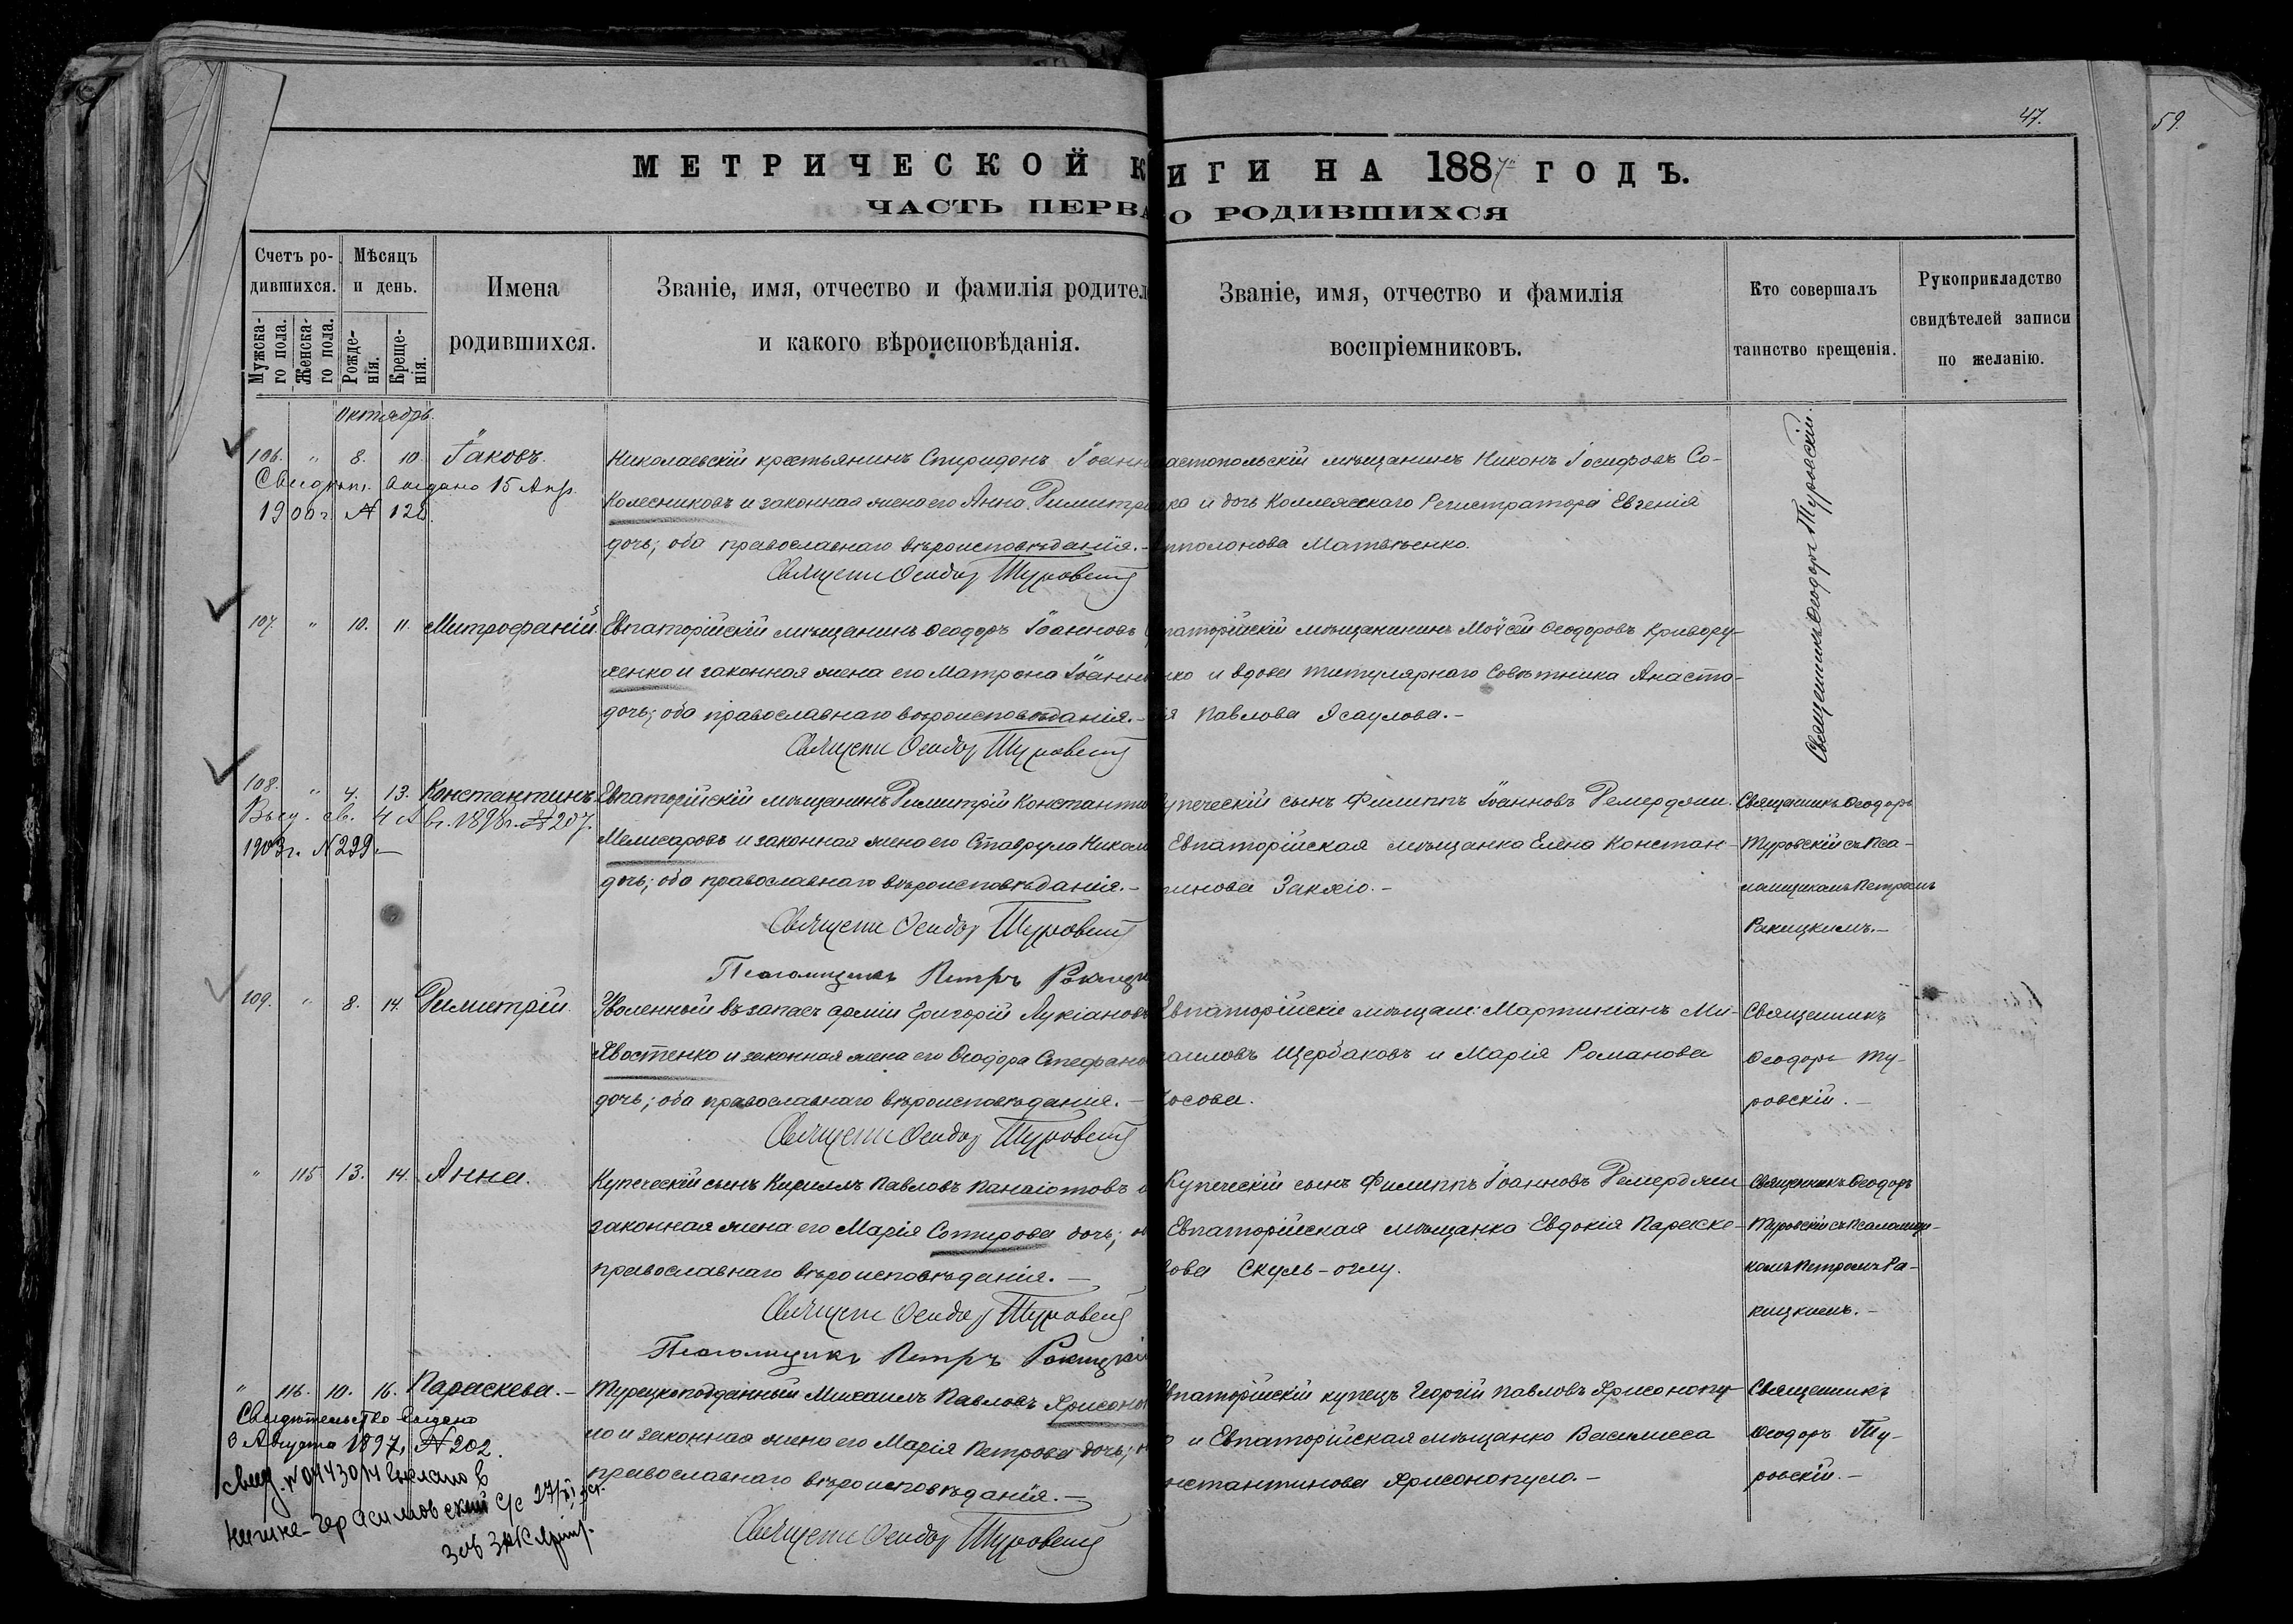 47.
59.
МЕТРИЧЕСКОЙ К
ИГИ НА 1887 ГОДЪ.
ЧАСТЬ ПЕРВА
О РОДИВШИХСЯ
Счетъ ро-
дившихся.
Мужска-
го пола.
Женска-
го пола.
Мѣсяцъ
и день.
Рожде-
нія.
Креще-
нія.
Имена
родившихся.
Званіе, имя, отчество и фамилія родител
и какого вѣроисповѣданія.
Званіе, имя, отчество и фамилія
воспріемниковъ.
Кто совершалъ
таинство крещенія.
Рукоприкладство
свидѣтелей записи
по желанію.
Октябрь.
106. " 8. 10. Іаковъ.
Свидѣт. выдано 15 Апр.
1900 г. №
Николаевскій крестьянинъ Спиридонъ Іоанн
Колесниковъ и законная жена его Анна Димитрі
дочь; оба православнаго вѣроисповѣданія.-
Священ Ѳеодор Туровскій
астопольскій мѣщанинъ Никонъ Іосифовъ Со-
ка и дочь Коллежскаго Регистратора Евгенія
пполонова Матвѣенко.
Священникъ Ѳеодоръ Туровскій.
107. " 10. 11. Митрофаній
Евпаторійскій мѣщанинъ Ѳеодоръ Іоанновъ
ченко и законная жена его Матрона Іоанно
дочь; оба православнаго вѣроисповѣданія.-
Священ Ѳеодор Туровскій
паторійскій мѣщанинъ Моѵсей Ѳеодоровъ Кривору-
нко и вдова титулярнаго Совѣтника Анаста-
ія Павлова Ясаулова.-
108. " 4. 13. Константинъ
Выд. св. 4 1898 г. № 207.
1903 г. № 299.-
Евпаторійскій мѣщанинъ Димитрій Константи
Мелисаровъ и законная жена его Ставрула Никол
дочь; оба православнаго вѣроисповѣданія.-
Священ Ѳеодор Туровскій
Псаломщикъ Петръ Ракицк
упеческій сынъ Филиппъ Іоанновъ Демерджи.
Евпаторійская мѣщанка Елена Констан-
тинова Закхіо.-
Священникъ Ѳеодоръ
Туровскій съ Пса-
ломщикомъ Петромъ
Ракицкимъ.-
109. " 8. 14. Димитрій.
Уволенный въ запасъ арміи Григорій Лукіановъ
Хвостенко и законная жена его Ѳеодора Стефано
дочь; оба православнаго вѣроисповѣданія.-
Священ Ѳеодор Туровскій
Евпаторійскіе мѣщане: Мартиніанъ Ми-
хаиловъ Щербаковъ и Марія Романова
Косова.
Священникъ
Ѳеодоръ Ту-
ровскій.-
" 115 13. 14. Анна.
Купеческій сынъ Кириллъ Павловъ Панаіотовъ и
законная жена его Марія Сотирова дочь; об
православнаго вѣроисповѣданія.-
Священ Ѳеодор Туровскій
Псаломщикъ Петръ Ракицкій
Купеческій сынъ Филиппъ Іоанновъ Демерджи
Евпаторійская мѣщанка Евдокія Параске-
вова Скуль-оглу.
Священникъ Ѳеодоръ
Туровскій съ Псаломщи-
комъ Петромъ Ра-
кицкимъ.-
" 116. 10. 16. Параскева.-
Свидѣтельство выдано
3 Августа 1897, № 202.
свид. № выслано в
27/
зав ЗАКС
Турецкоподданный Михаилъ Павловъ Хрисоно
ло и законная жена его Марія Петрова дочь; об
православнаго вѣроисповѣданія.-
Священ Ѳеодор Туровскій
Евпаторійскій купецъ Георгій Павловъ Хрисонопу-
о и Евпаторійская мѣщанка Василисса
нстантинова Хрисонопуло.-
Священникъ
Ѳеодоръ Ту-
ровскій.-